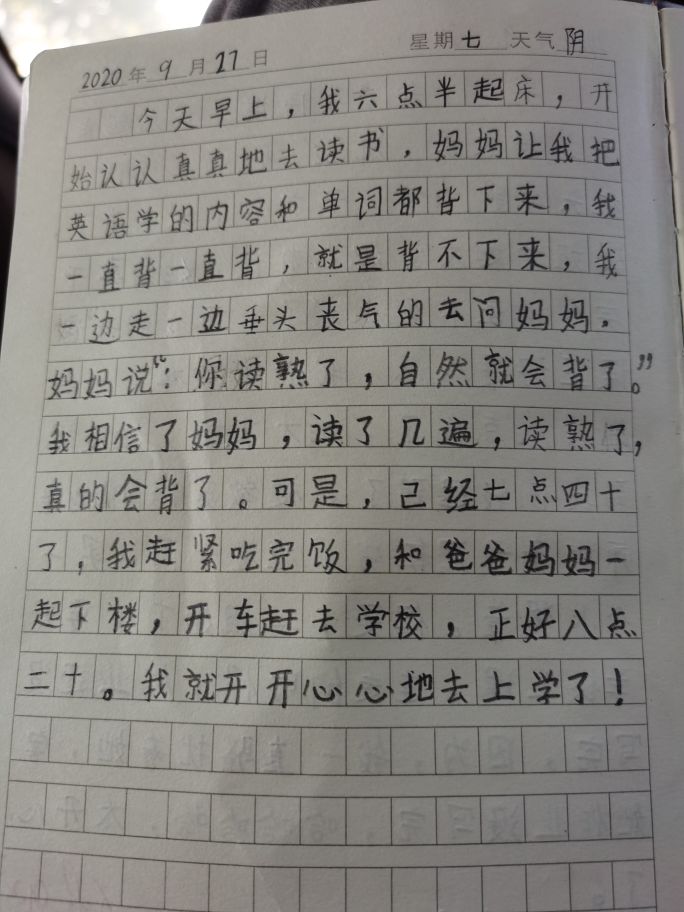 2020年9月27日 星期七 天气阴
今天早上，我六点半起床，开
始认认真真地去读书，妈妈让我把
英语学的内容和单词都背下来，我
一直背一直背，就是背不下来，我
一边走一边垂头丧气的去问妈妈。
妈妈说“：你读熟了，自然就会背了。”
我相信了妈妈，读了几遍，读熟了，
真的会背了。可是，已经七点四十
了，我赶紧吃完饭，和爸爸妈妈一
起下楼，开车赶去学校，正好八点
二十。我就开开心心地去上学了！